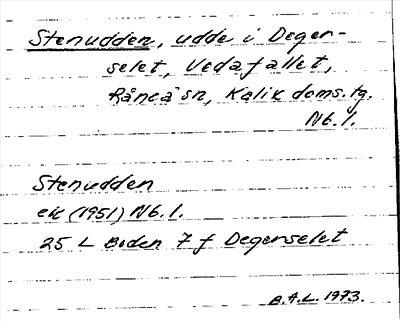 Stenudden, udde i Deger-
selet, Vedafallet,
Råneå sn, Kalix doms.tg.
Nb.l.
Stenudden
ek (1951) Nb.l.
25 L Boden 7 f Degerselet
B.A.L. 1973.